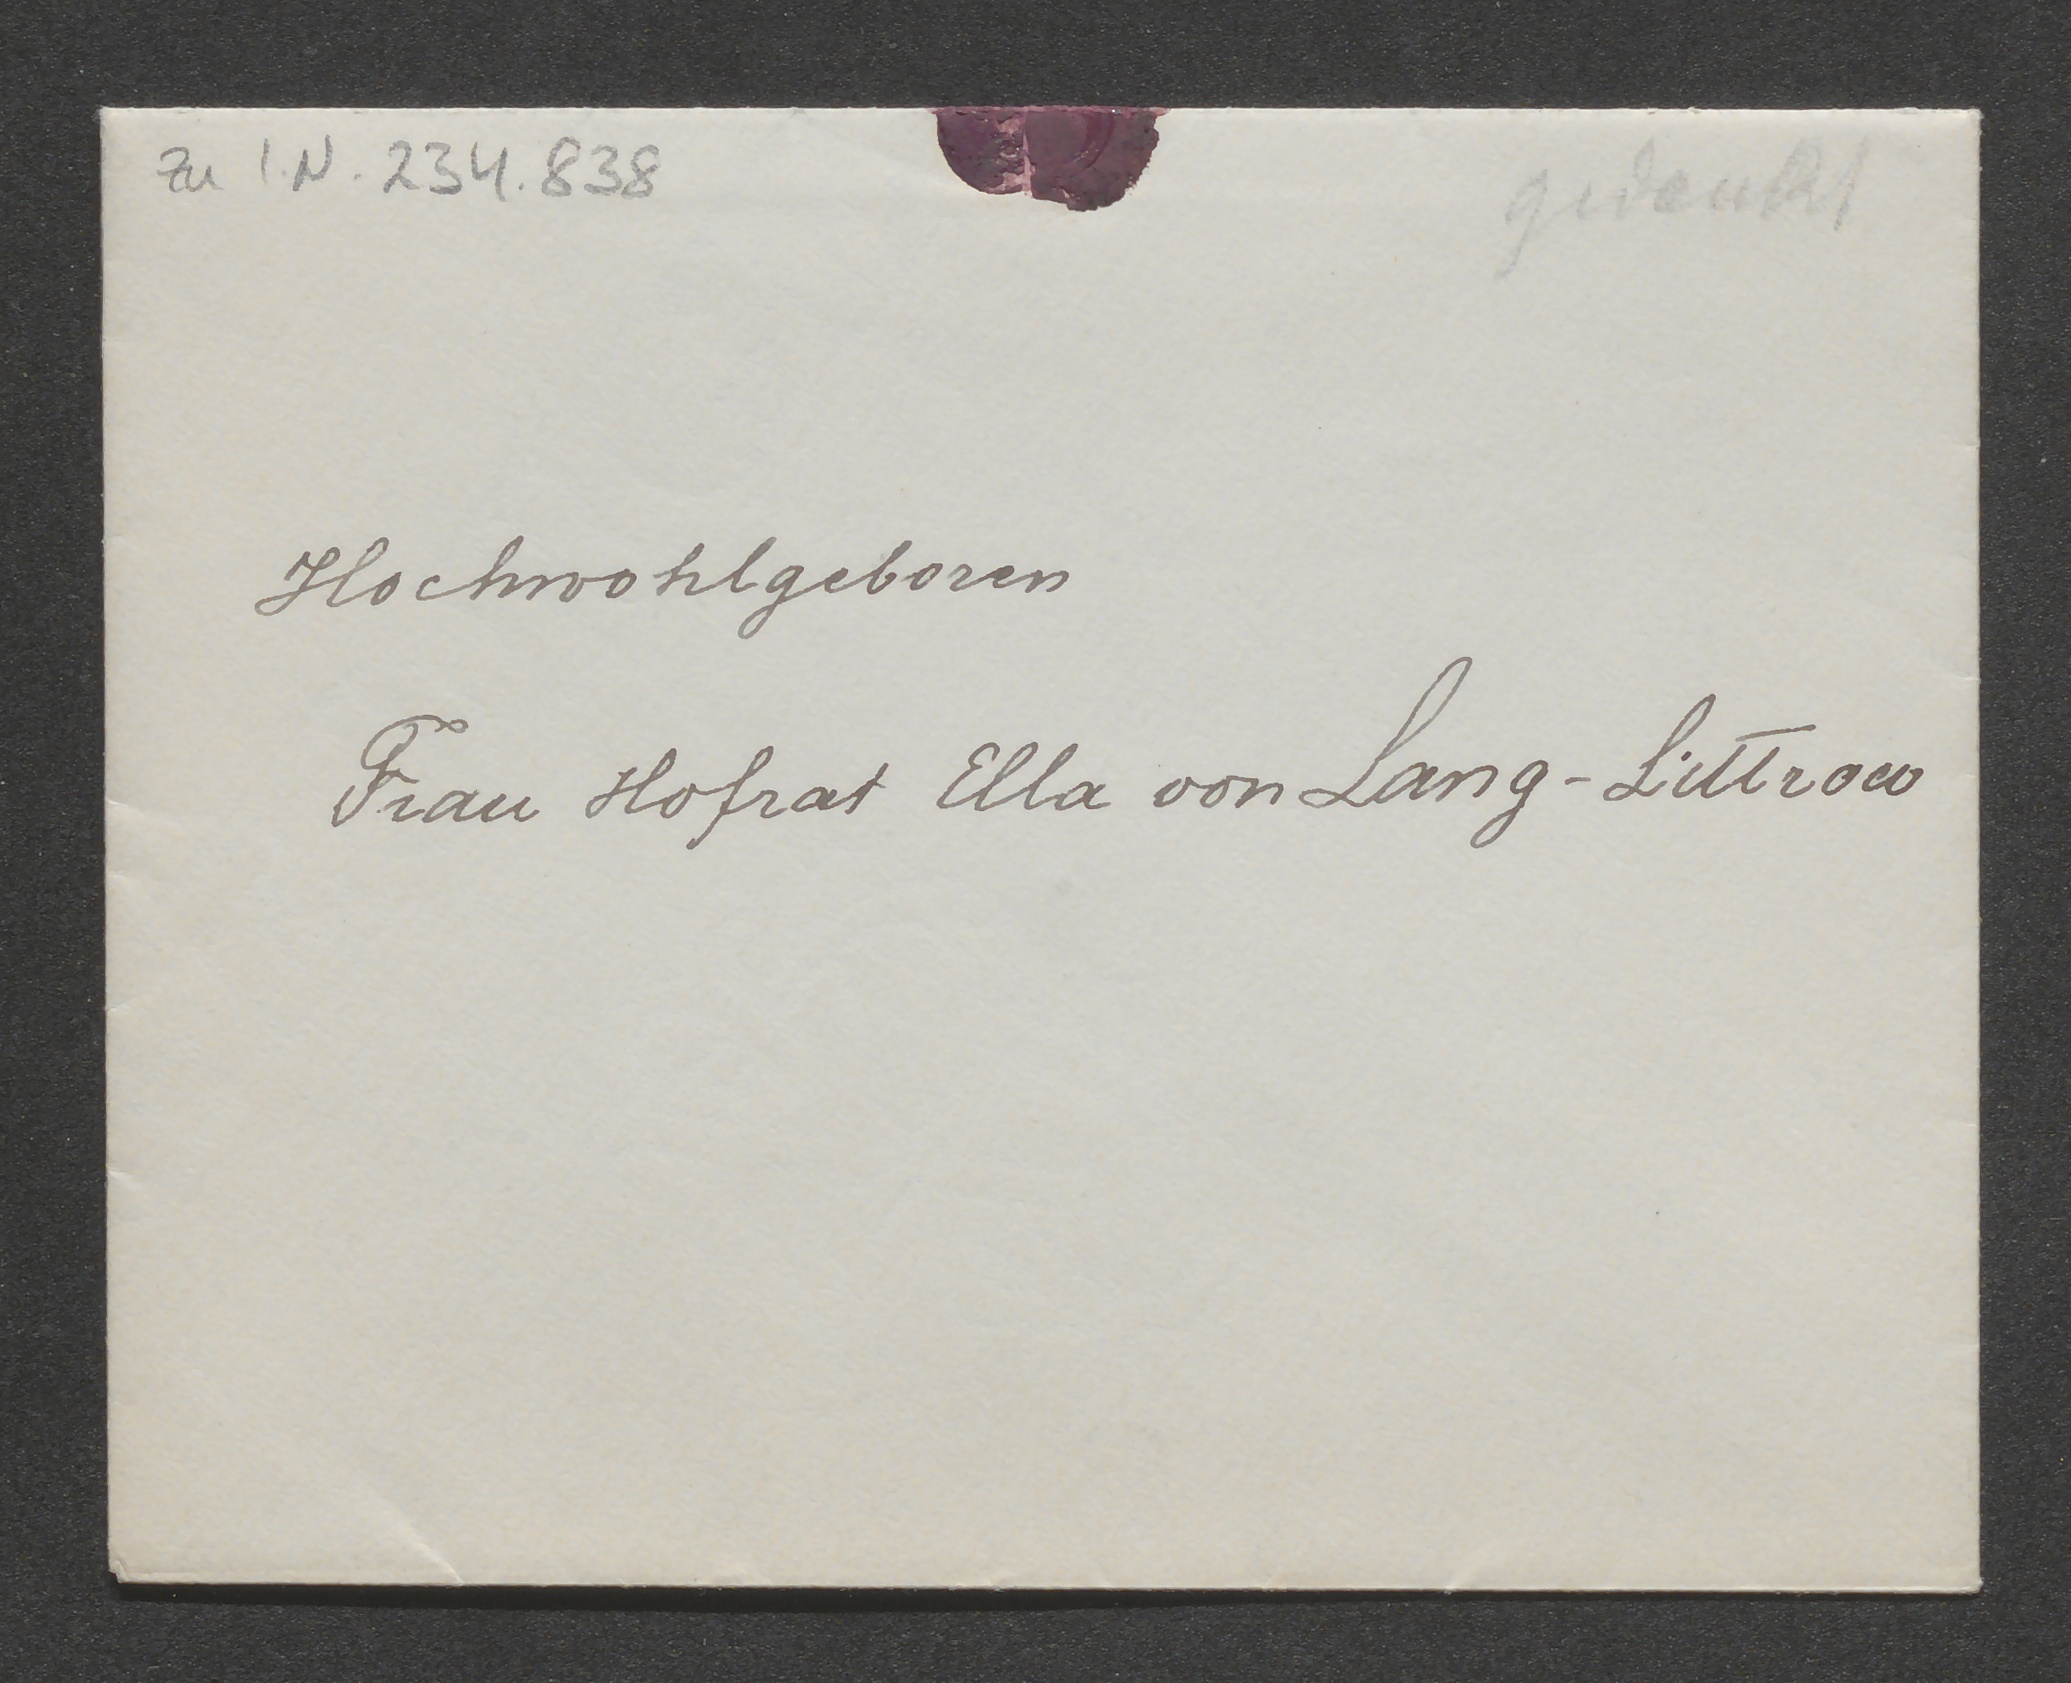 Zu I.N. 234.838
Hochwohlgeboren
Frau Hofrat Ella von Lang-Littrow